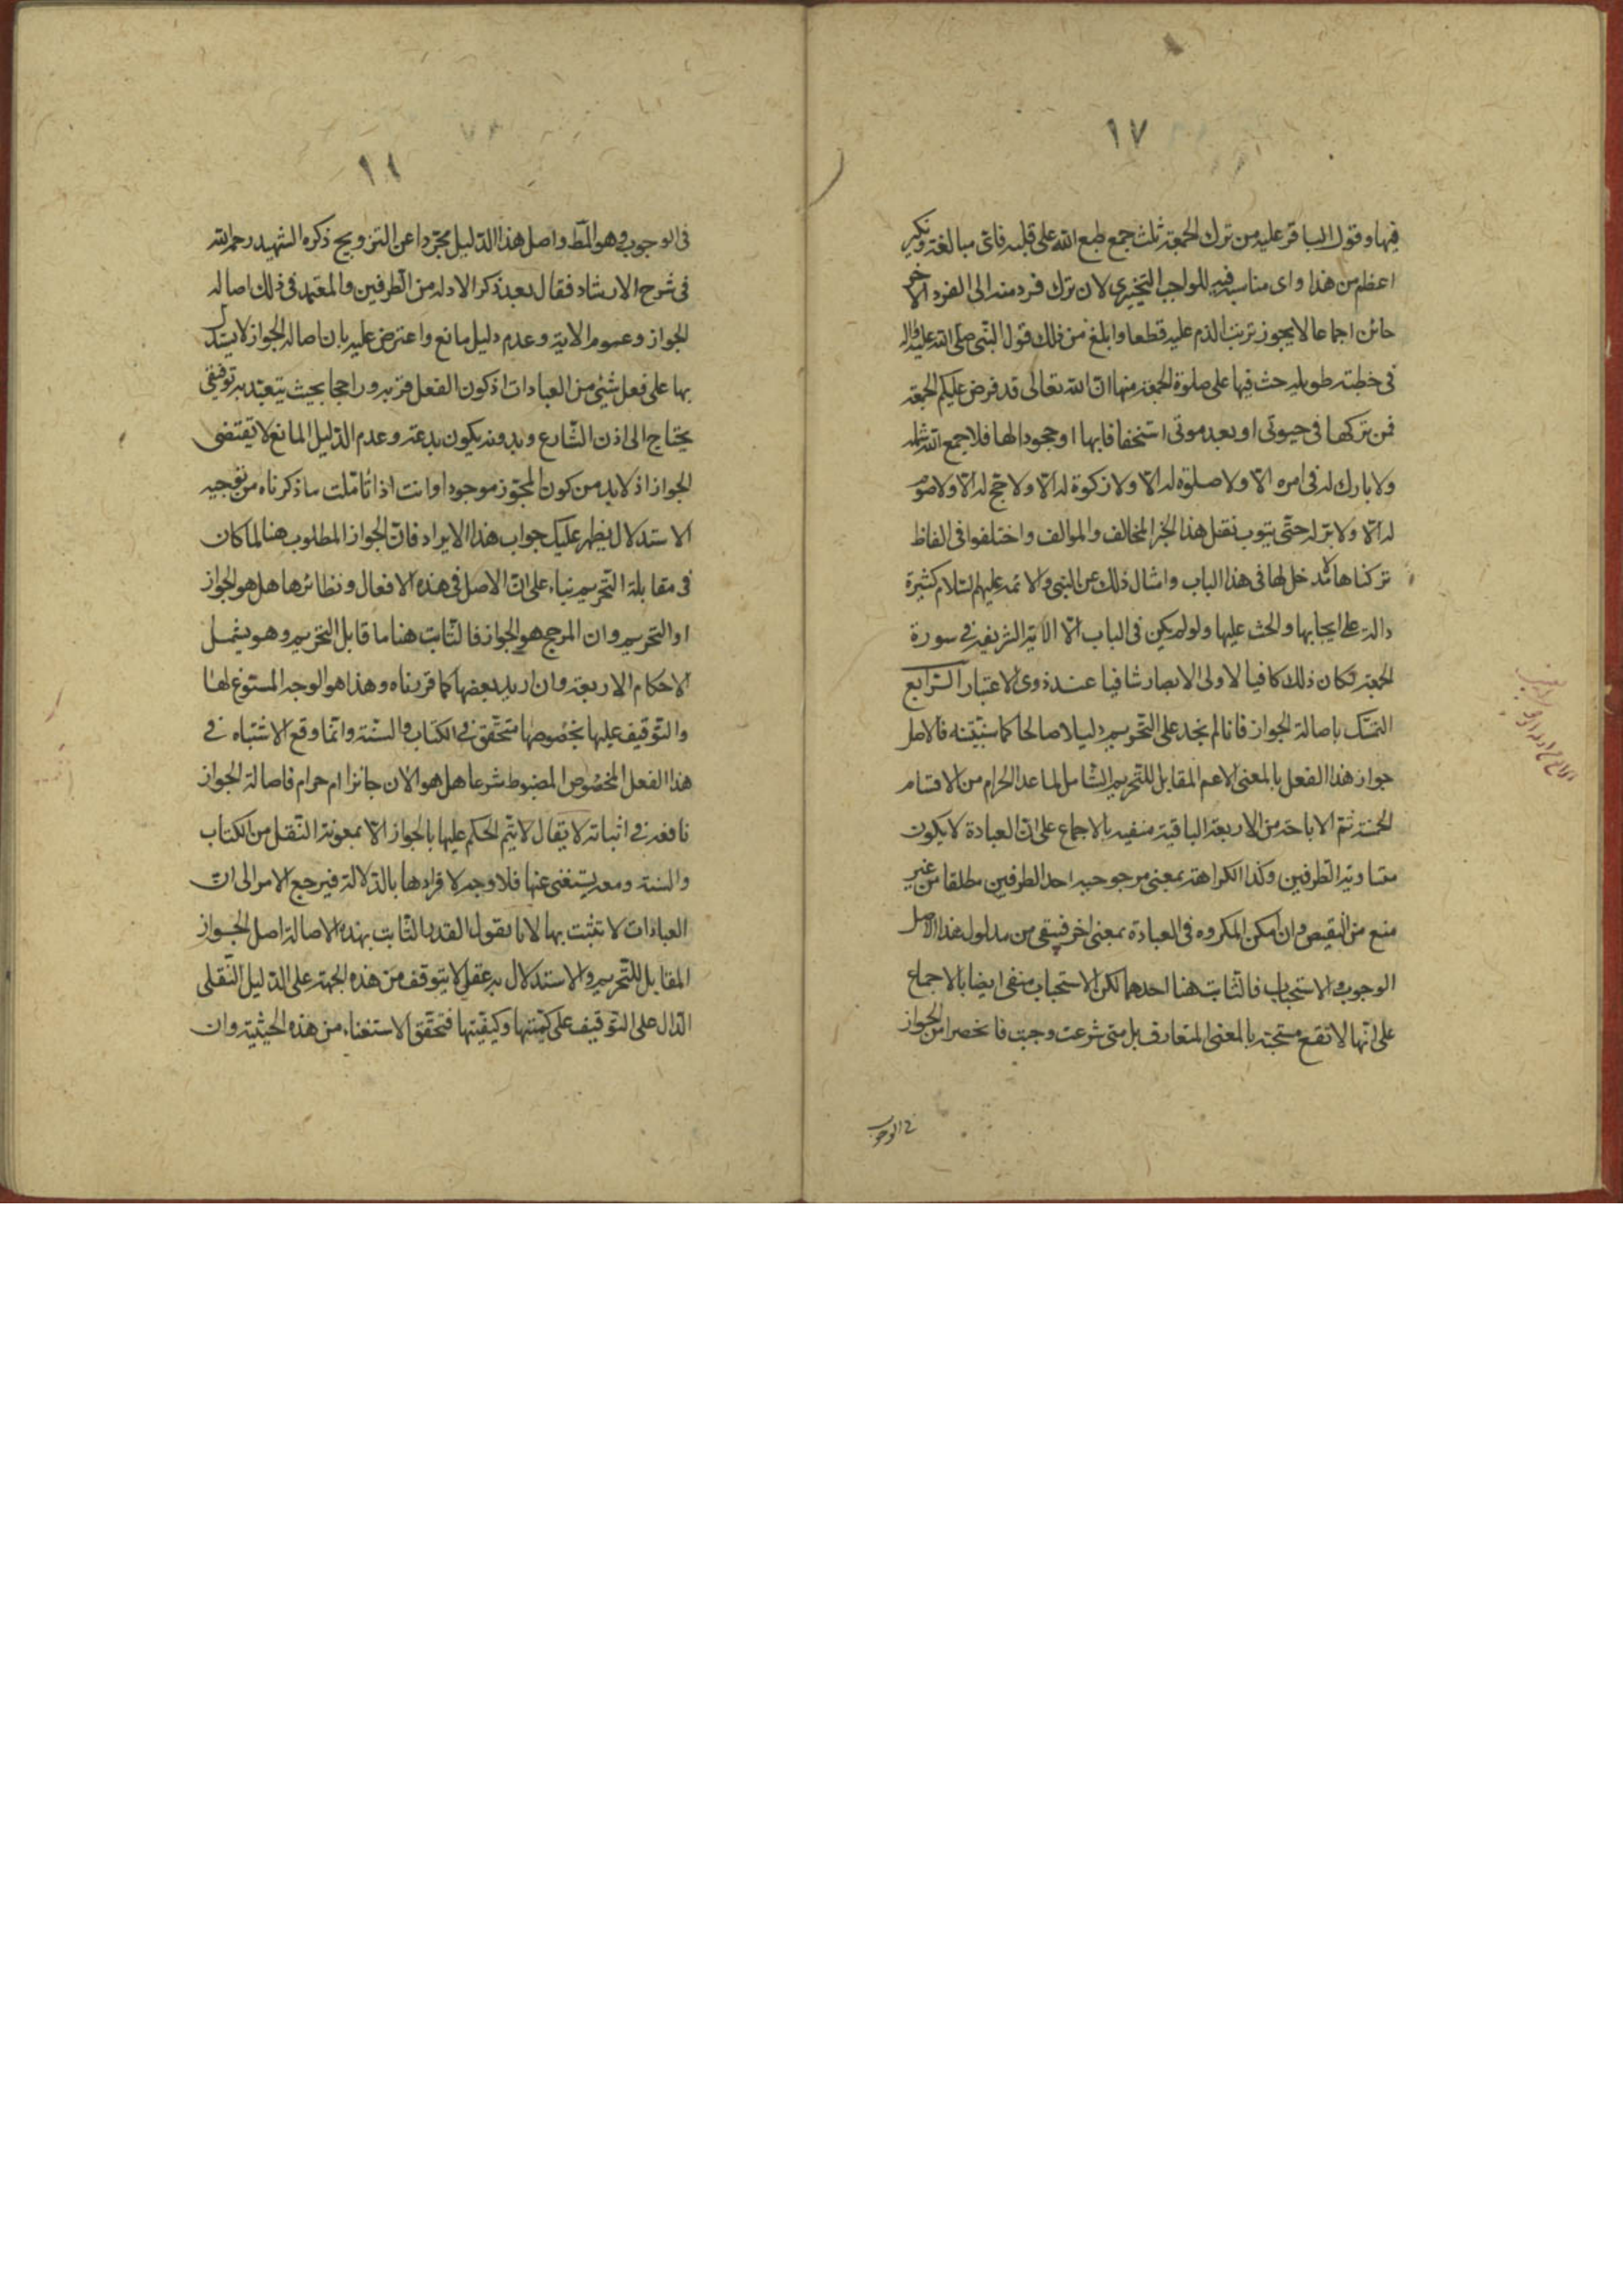 ١٧
فيها وقول الباقر عليه من ترك الجمعة ثلث جمع طبع الله على قلبه فاى مبالغة ونكير
اعظم من هذا واى مناسب فيه للواجب التخييرى لان ترك فرد منه الى الفرد الاخر
جائز اجماعا لا يجوز ترتب الذم عليه قطعا وابلغ من ذلك قول النبى صلى الله عليه واله
فى خطبة طويلة حث فيها على صلوة الجمعة منها ان الله تعالى قد فرض عليكم الجمعة
فمن تركها فى حيوتى او بعد موتى استخفافا بها او جحودا لها فلا جمع الله شمله
ولا بارك له فى امره الا ولا صلوة له الا ولا زكوة له الا ولا حج له الا ولا صوم
له الا ولا بر له حتى يتوب نقل هذا الخبر المخالف والموالف واختلفوا فى الفاظ
تركناها لا مدخل لها فى هذا الباب وامثال ذلك عن النبى والائمة عليهم السلام كثيرة
دالة على ايجابها والحث عليها ولو لم يكن فى الباب الا الاية الشريفة فى سورة
الجمعة لكان ذلك كافيا لاولى الابصار شافيا عند ذوى الاعتبار الرابع
التمسك باصالة الجواز فانا لم نجد على التحريم دليلا صالحا كما سنبينه فالاصل
جواز هذا الفعل بالمعنى الاعم المقابل للتحريم الشامل لما عدا الحرام من الاقسام
الخمسة ثم الاباحة من الاربعة الباقية منفية بالاجماع على ان العبادة لا يكون
متساوية الطرفين وكذا الكراهة بمعنى مرجوحية احد الطرفين مطلقا من غير
منع من النقيص وان امكن المكروه فى العبادة بمعنى اخر فيبقى من مدلول هذا الاصل
الوجوب والاستحباب فالثابت هنا احدهما لكن الاستحباب منفى ايضا بالاجماع
على انها لا تقع مستحبة بالمعنى المتعارف بل متى شرعت وجبت فانحصر امر الجواز
فى الوجوب
١٨
فى الوجوب وهو المط واصل هذا الدليل مجردا عن الترويج ذكره الشهيد رحمه الله
فى شرح الارشاد فقال بعد ذكر الادلة من الطرفين والمعتمد فى ذلك اصالة
الجواز وعموم الاية وعدم دليل مانع واعترض عليه بان اصالة الجواز لا يستدل
بها على فعل شئى من العبادات اذ كون الفعل قربة وراجحا بحيث يتعبد به توقيفى
يحتاج الى اذن الشارع وبدونه يكون بدعة وعدم الدليل المانع لا يقتضى
الجواز اذ لا بد من كون المجوز موجودا وانت اذا تاملت ما ذكرناه من توجيه
الاستدلال يظهر عليك جواب هذا الايراد فان الجواز المطلوب هنا لما كان
فى مقابلة التحريم بناء على ان الاصل فى هذه الافعال ونظائرها هل هو الجواز
او التحريم وان المرجح هو الجواز فالثابت هنا ما قابل التحريم وهو يشمل
الاحكام الاربعة وان اريد بعضها كما قررناه وهذا هو الوجه المسوغ لها
والتوقيف عليها بخصوصها متحقق فى الكتاب والسنة وانما وقع الاشتباه فى
هذا الفعل المخصوص المضبوط شرعا هل هو الان جائز ام حرام فاصالة الجواز
نافعة فى اثباته لا يقال لا يتم الحكم عليها بالجواز الا بمعونة النقل من الكتاب
والسنة ومعه يستغنى عنها فلا وجه لافرادها بالدلالة فيرجع الامر الى ان
العبادات لا تثبت بها لانا نقول القدر الثابت بهذه الاصالة اصل الجواز
المقابل للتحريم والاستدلال به عقلى لا يتوقف من هذه الجهة على الدليل النقلى
الدال على التوقيف على كميتها وكيفيتها فتحقق الاستغناء من هذه الحيثية وان